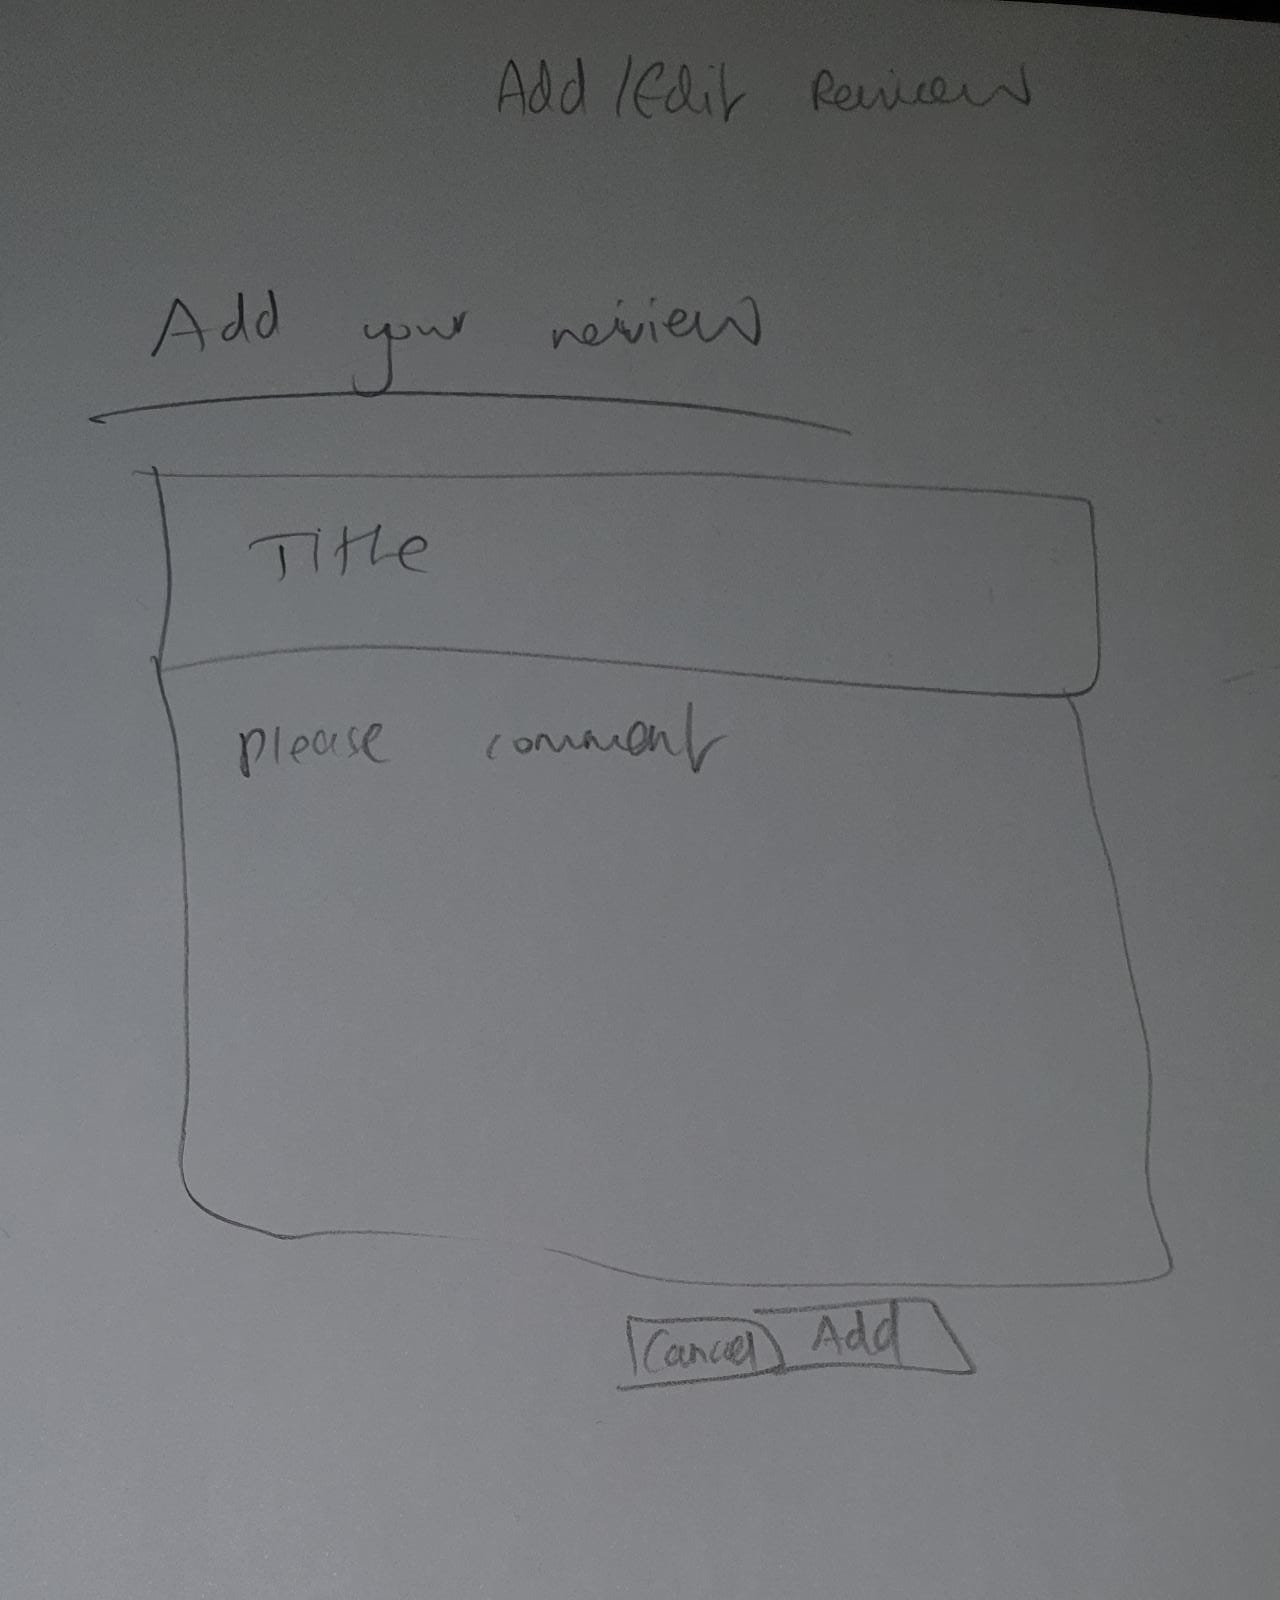 Add/Edit Review
Add your review
Title
please comment
Cancel Add